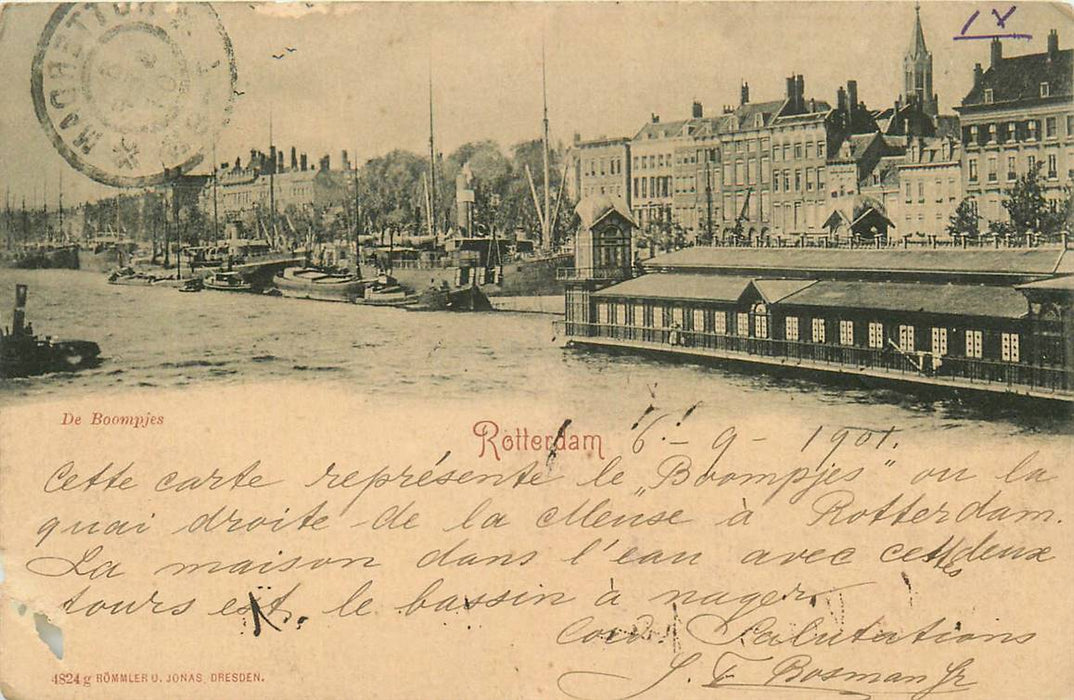 IX
De Boompjes
Rotterdam 6 - 9 - 1901.
Cette carte représente le „Boompjes" ou la
quai droite de la Meuse à Rotterdam.
La maison dans l'eau avec cettes deux
tours est le bassin à nager.
Salutations
J. F. Bosman Jr
4824 g RÖMMLER U. JONAS, DRESDEN.